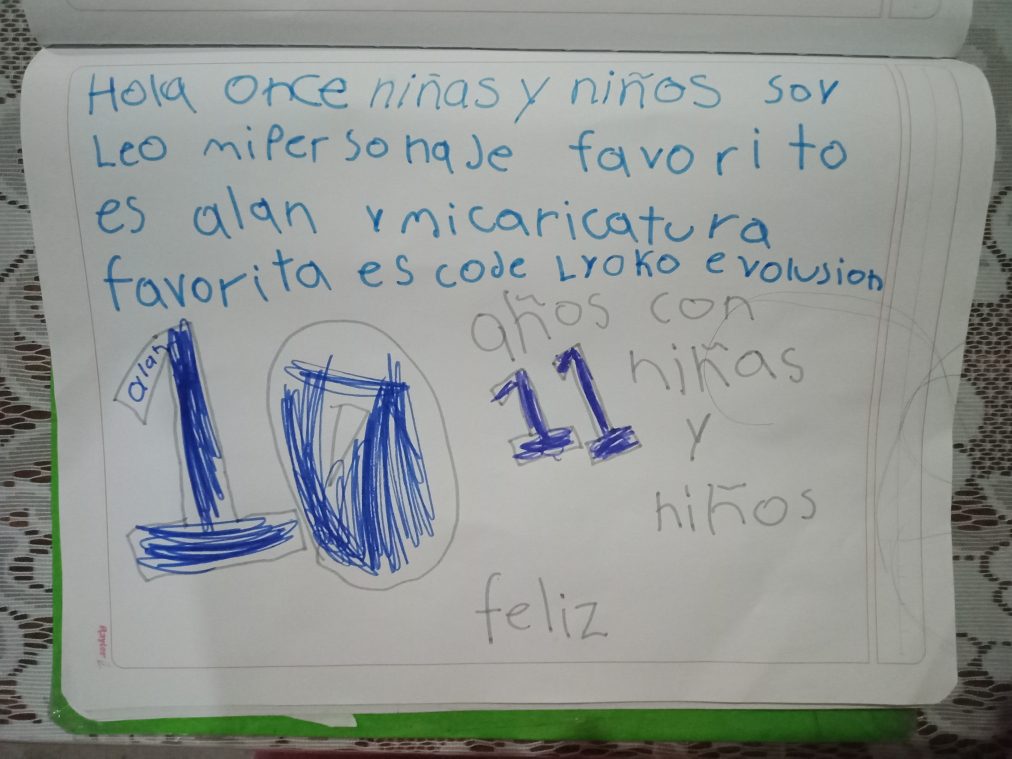 Hola once niñas y niños soy
Leo mi personaje favorito
es alan y mi caricatura
favorita es code Lyoko evolusion
alan
10 años con
11 niñas
y
niños
feliz